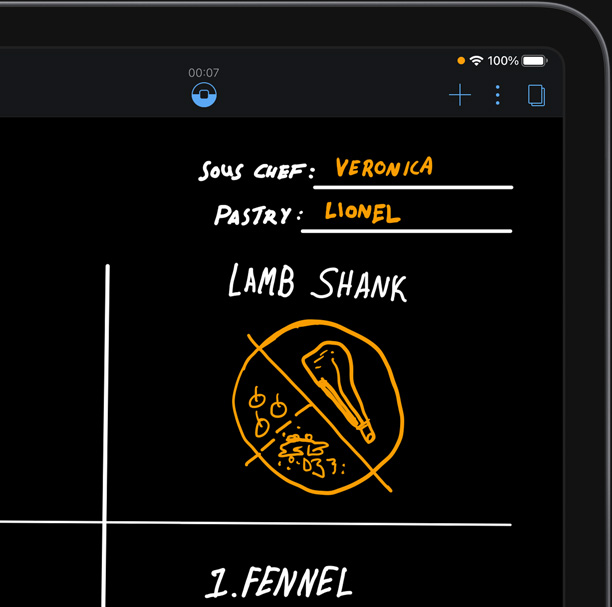 100%
00:07
SOUS CHEF: VERONICA
PASTRY: LIONEL
LAMB SHANK
1. FENNEL